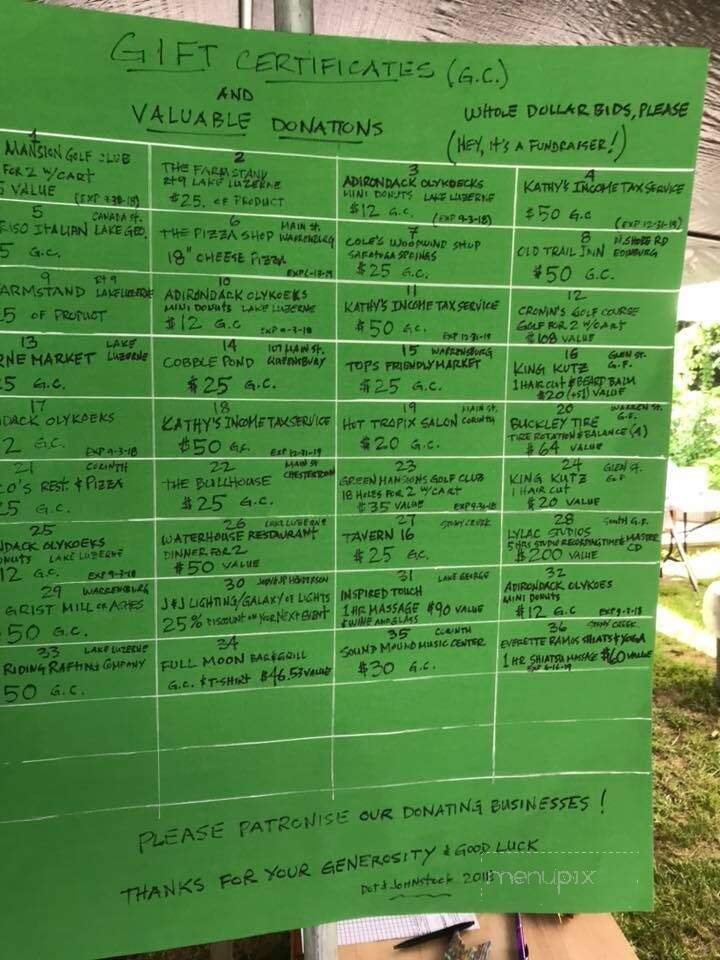 GIFT CERTIFICATES (G.C.)
AND
VALUABLE DONATIONS
WHOLE DOLLAR BIDS, PLEASE
(HEY, IT'S A FUNDRAISER!)
1
MANSION GOLF CLUB
FOR 2 W/CART
VALUE
2
THE FARMSTAND
RT 9 LAKE LUZERNE
$25. OF PRODUCT
3
ADIRONDACK OLYKOECKS
MINI DONUTS LAKE LUZERNE
$12 G.C. (EXP 9-3-18)
4
KATHY'S INCOME TAX SERVICE
$50 G.C
(EXP 12-31-19)
5 CANADA ST.
RISO ITALIAN LAKE GEO.
5 G.C.
6 MAIN ST.
THE PIZZA SHOP WARRENSBURG
18" CHEESE PIZZA
7
COLE'S WOODWIND SHOP
SARATOGA SPRINGS
$25 G.C.
8 N. SHORE RD
OLD TRAIL INN EDINBURG
$50 G.C.
9 RT 9
ARMSTAND LAKE LUZERNE
5 OF PRODUCT
10
ADIRONDACK OLYKOEKS
MINI DONUTS LAKE LUZERNE
$12 G.C EXP 9-3-18
11
KATHY'S INCOME TAX SERVICE
$50 G.C.
EXP 12-31-19
12
CRONIN'S GOLF COURSE
GOLF FOR 2 W/CART
$108 VALUE
13 LAKE
NE MARKET LUZERNE
5 G.C.
14 107 MAIN ST.
COBBLE POND QUEENSBURY
$25 G.C.
15 WARRENSBURG
TOPS FRIENDLY MARKET
$25 G.C.
16 GLEN ST.
KING KUTZ G.F.
1 HAIRCUT & BEARD BALM
$20 (+$1) VALUE
17
DACK OLYKOEKS
2 G.C. EXP 9-3-18
18
KATHY'S INCOME TAX SERVICE
$50 G.C. EXP 12-31-19
19 MAIN ST.
HOT TROPIX SALON CORINTH
$20 G.C.
20 WARREN ST.
BUCKLEY TIRE G.F.
TIRE ROTATION & BALANCE (4)
$64 VALUE
21 CORINTH
O'S REST. & PIZZA
5 G.C.
22 MAIN ST
THE BULLHOUSE CHESTERTOWN
$25 G.C.
23
GREEN MANSIONS GOLF CLUB
18 HOLES FOR 2 W/CART
$35 VALUE EXP 9-30-18
24 GLEN ST.
KING KUTZ G.F
1 HAIR CUT
$20 VALUE
25
DACK OLYKOEKS
NUTS LAKE LUZERNE
12 G.C. EXP 9-3-18
26 LAKE LUZERNE
WATERHOUSE RESTAURANT
DINNER FOR 2
$50 VALUE
27 STONY CREEK
TAVERN 16
$25 G.C.
28 SOUTH G.F.
LYLAC STUDIOS
5 HRS STUDIO RECORDING TIME & MASTER
CD
$200 VALUE
29 WARRENSBURG
GRIST MILL OR ASHES
50 G.C.
30 HENDERSON
J&J LIGHTING/GALAXY OF LIGHTS
25% DISCOUNT ON YOUR NEXT EVENT
31 LAKE GEORGE
INSPIRED TOUCH
1 HR MASSAGE $90 VALUE
& WINE AND GLASS
32
ADIRONDACK OLYKOES
MINI DONUTS
$12 G.C EXP 9-3-18
33 LAKE LUZERNE
RIDING RAFTING COMPANY
50 G.C.
34
FULL MOON BAR & GRILL
G.C. & T-SHIRT $46.53 VALUE
35 CORINTH
SOUND MOUND MUSIC CENTER
$30 G.C.
36 STONY CREEK
EVERETTE RAMOS SHIATSU & YOGA
1 HR SHIATSU MASSAGE $60 VALUE
PLEASE PATRONISE OUR DONATING BUSINESSES!
THANKS FOR YOUR GENEROSITY & GOOD LUCK
DOT & JOHNSTOCK 2018
menupix